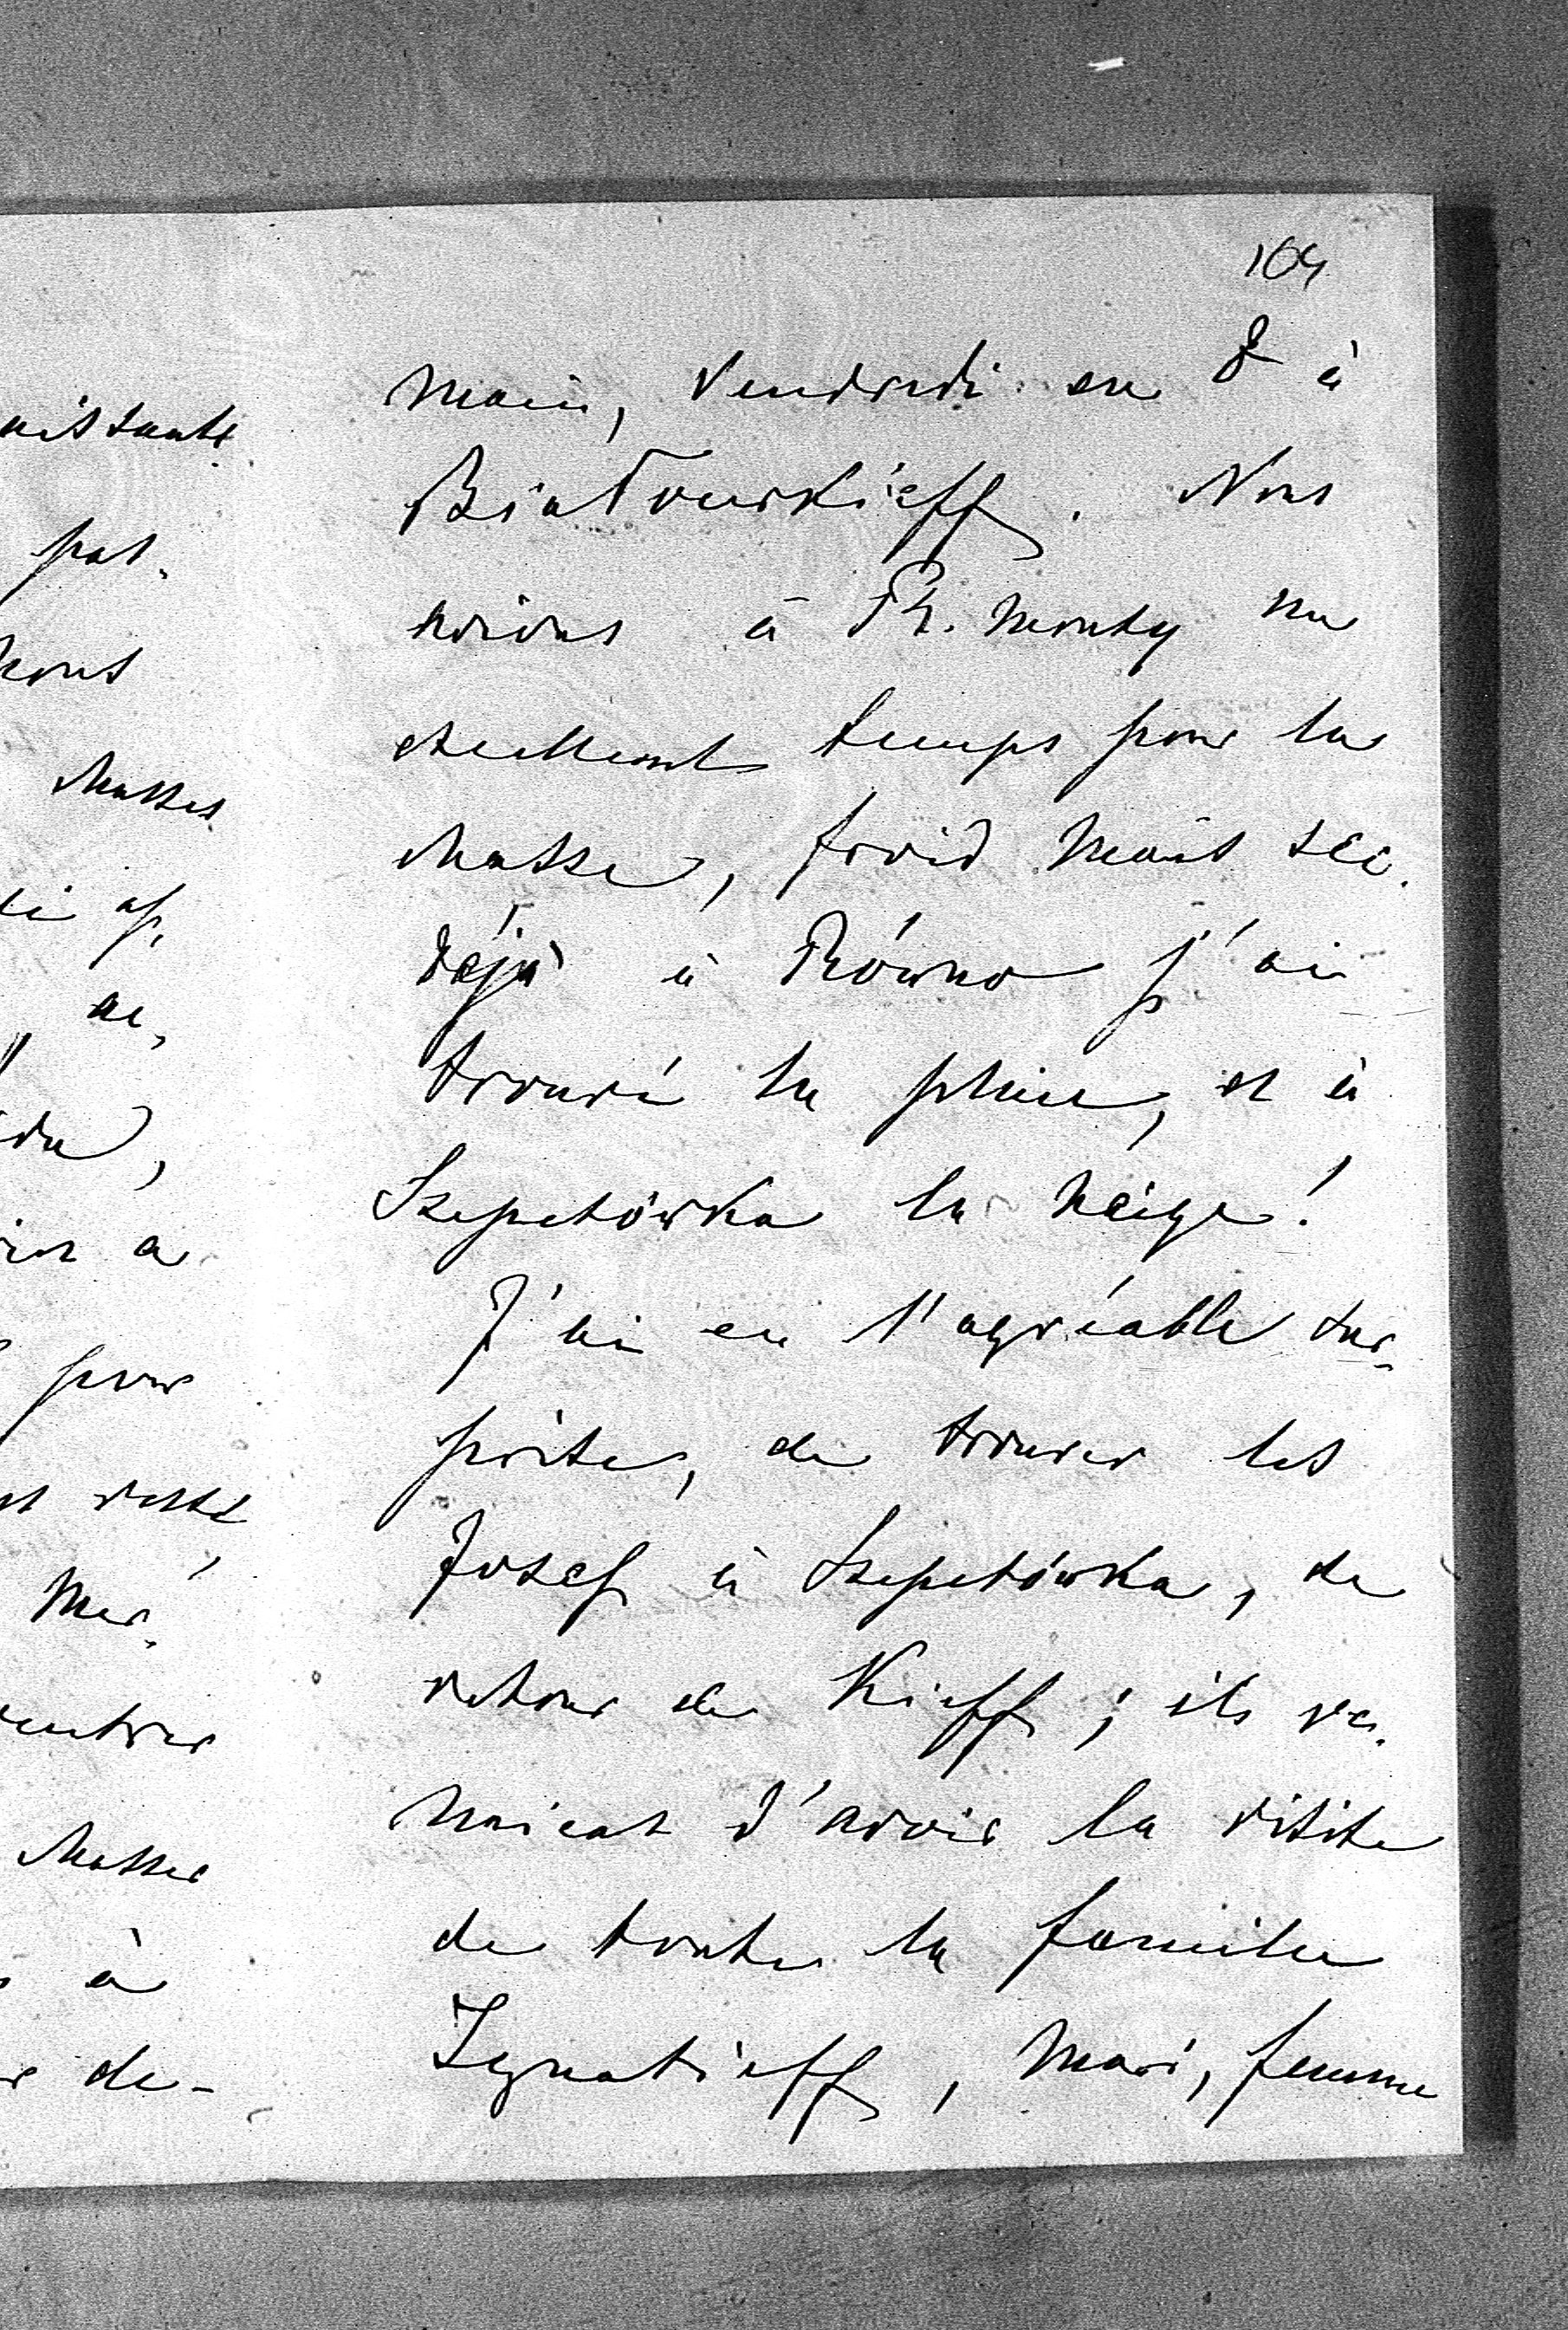 104
main, Vendredi en 8 à
Białourkieff. Nous
avions à Pł. Monty un
excellent temps pour la
chasse, froid mais sec.
déjà à Równo j'ai
trouvé la pluie, et à
Szepetówka la neige!
J'ai eu l'agréable sur-
prise, de trouver les
Josef à Szepetówka, de
retour de Kieff; ils ve-
naient d'avoir la visite
de toute la famille
Ignatieff, Mari, femme
pas-
chasses
di ap-
ac-
a
pour
est resté
Mer-
rentrer
chasser
à
de-